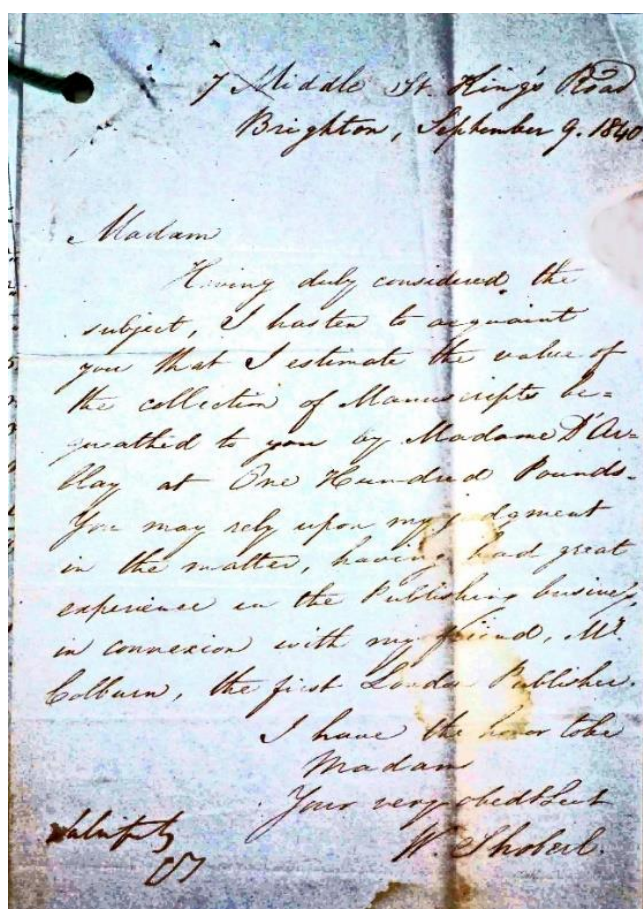 7 Middle St. King's Road
Brighton, September 9. 1840
Madam
Having duly considered the
subject, I hasten to acquaint
you that I estimate the value of
the collection of Manuscripts be=
queathed to you by Madame D'Ar=
blay at One Hundred Pounds.
You may rely upon my judgment
in the matter, having had great
experience in the Publishing business,
in connexion with my friend, Mr
Colburn, the first London Publisher.
I have the honor to be
Madam
Your very obedt Servt
W. Shoberl.